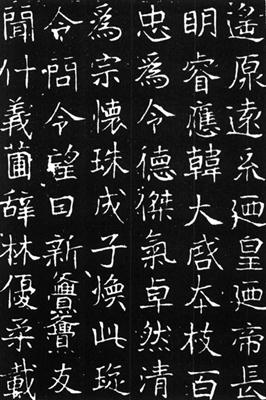 遙原遠系迺皇迺帝長
明睿應韓大啓本枝百
忠爲令德傑氣卓然清
爲宗懷珠成子煥此琁
令問令望日新亹亹友
聞什義圃辭林優柔載